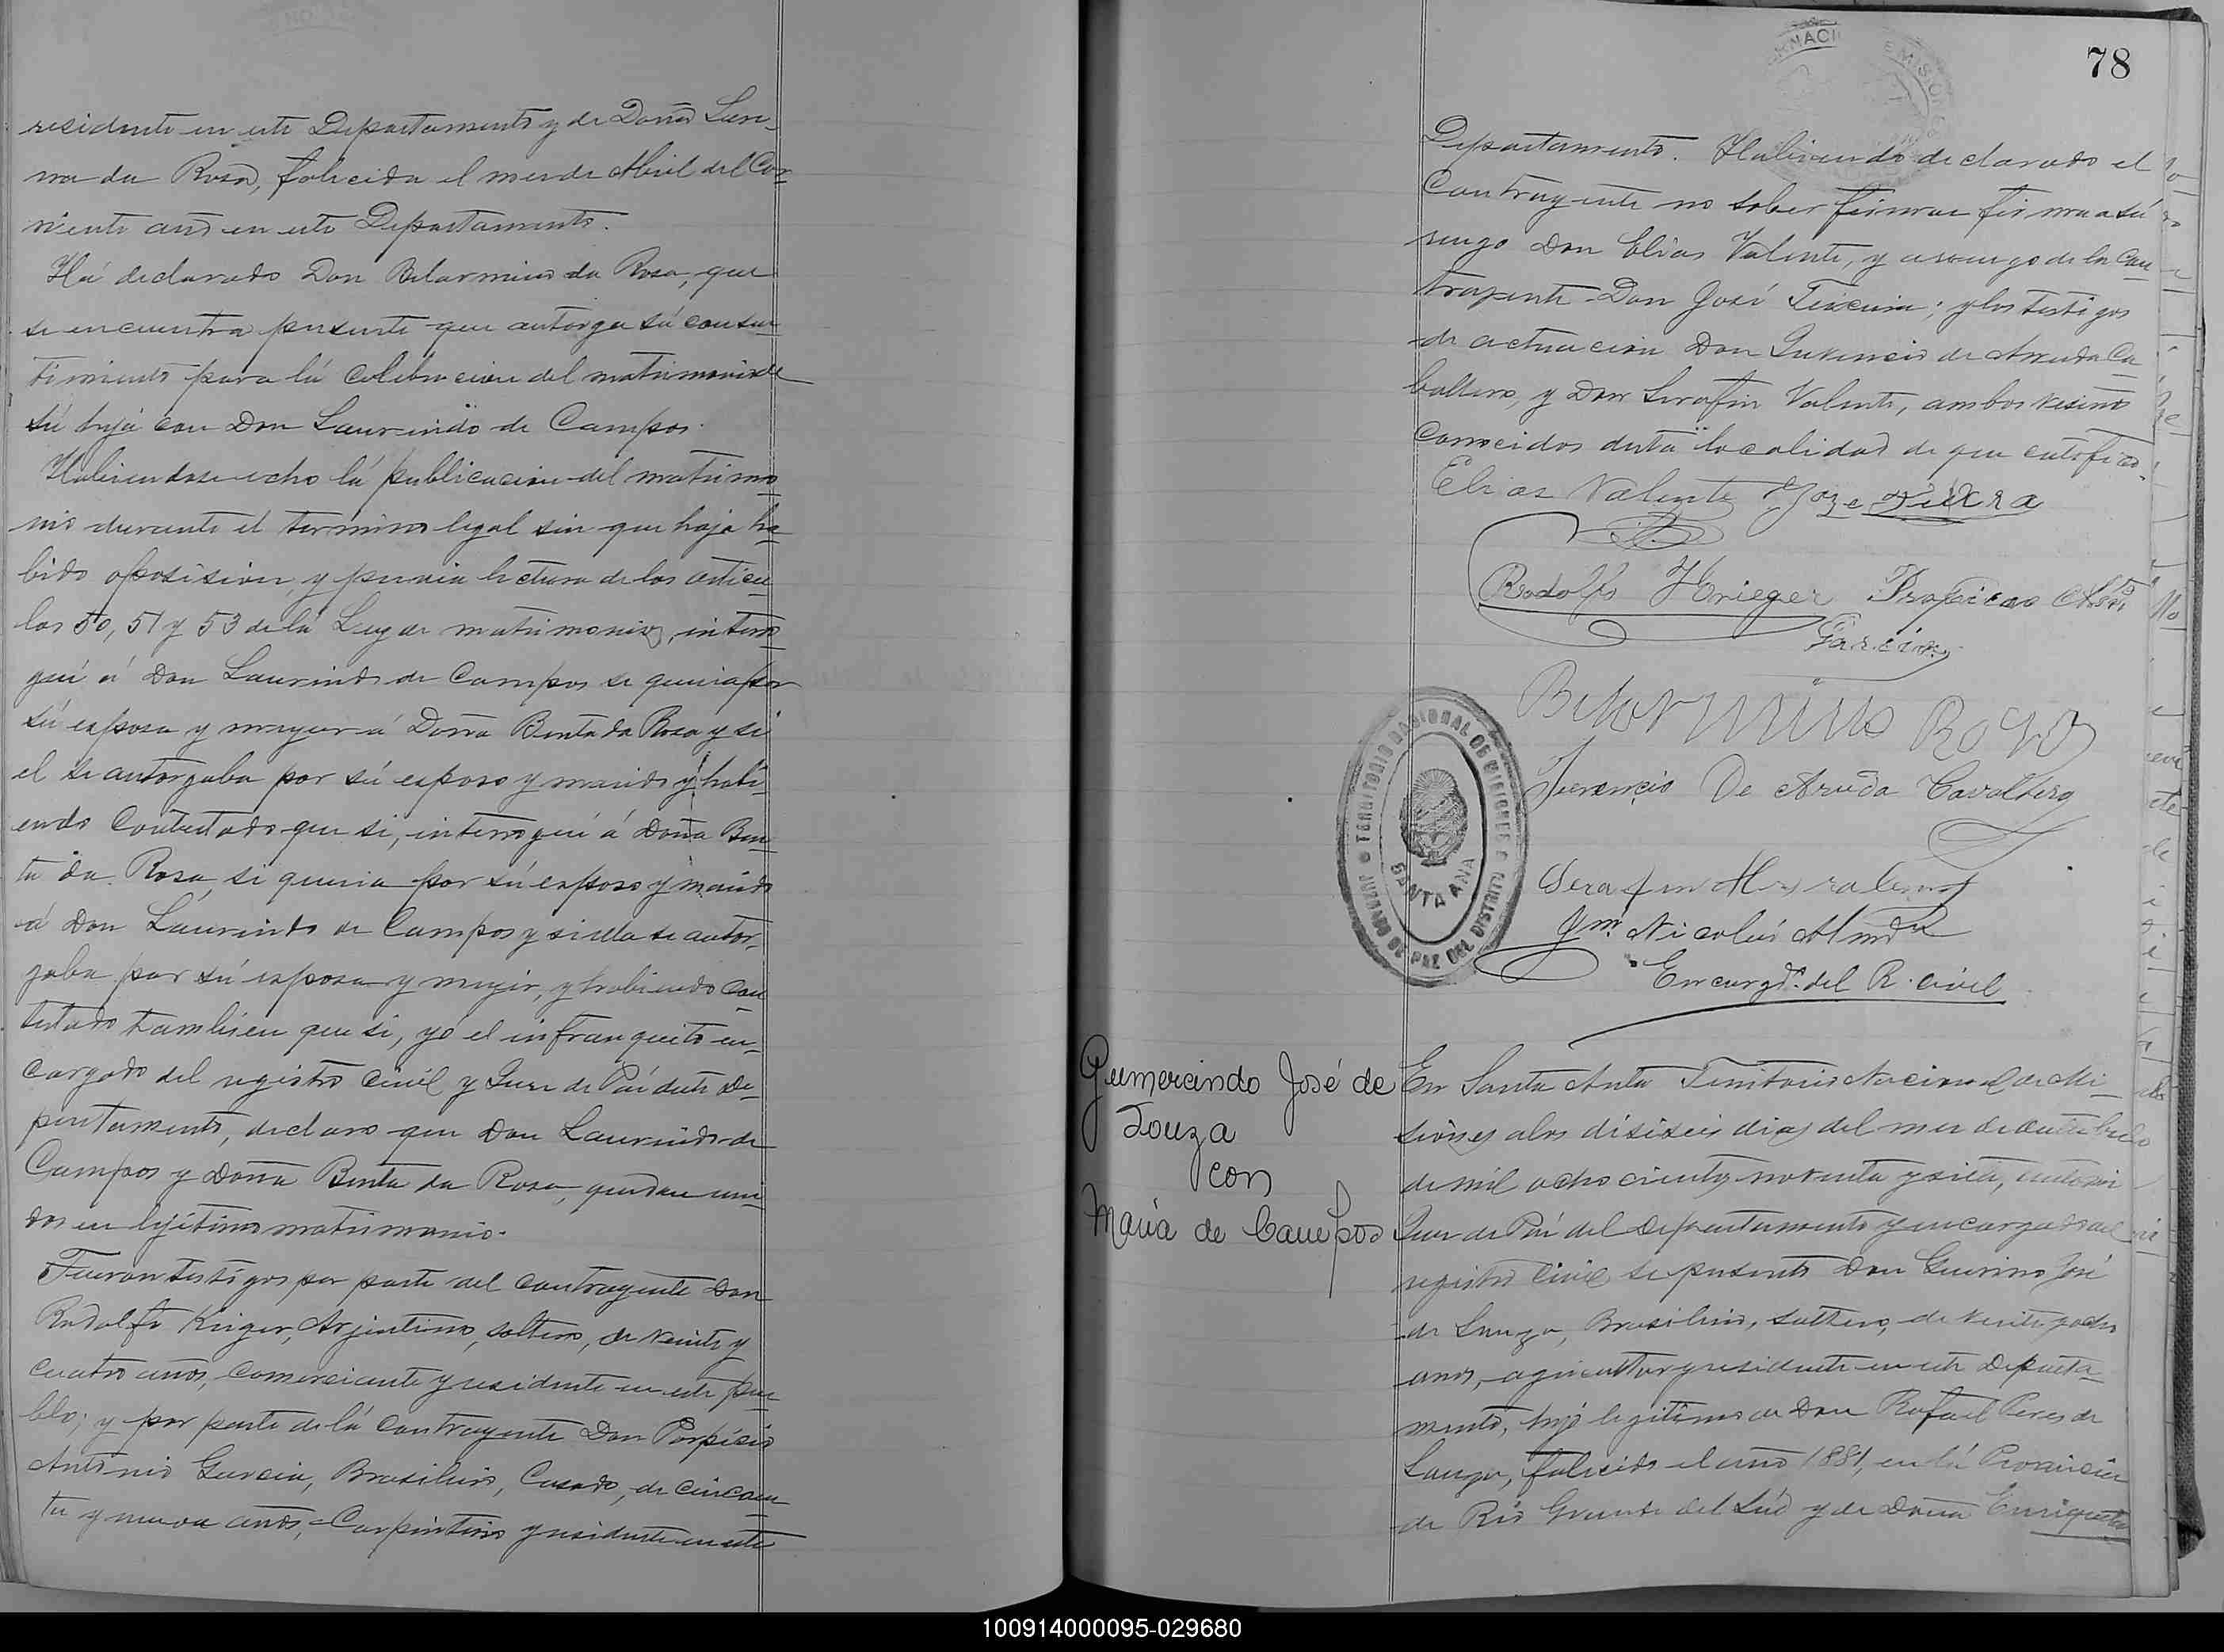 residente en este Departamento y de Doña Lau-
na da Rosa, falecida el mes de Abril del Cor-
riente año en este Departamento.
Há declarado Don Belarmino da Rosa, que
se encuentra presente que autorga sú consen-
timiento para lá celebracion del matrimonio de
sú hija con Don Laurindo de Campos.
Habiendose echo lá publicacion del matrimo-
nio durante el termino legal sin que haja ha-
bido oposision, y previa lectura de los articu-
los 50, 51 y 53 de lá Ley de matrimonio, interro-
gué á Don Laurindo de Campos se queria por
sú esposa y muger á Doña Benta da Rosa y si
el se autorgaba por sú esposo y marido y habi-
endo Contestado que si, interrogué á Doña Ben-
ta da Rosa, si queria por sú esposo y marido
á Don Laurindo de Campos y si ella se autor-
gaba por sú esposa y mujer, y habiendo Con-
testado tambien que si, yo el infranquito en-
cargado del registro Civil y Juez de Páz deste De-
partamento, declaro que Don Laurindo de
Campos y Doña Benta da Rosa, quedan uni-
dos en lejítimo matrimonio.
Fueron testigos por parte del contrayente Don
Rodolfo Kriger, Arjentino, soltero, de veinte y
cuatro años, comerciante y residente en este pue-
blo; y por parte de lá contrayente Don Porpicio
Antonio Garcia, Brasilero, Casado, de cincoen-
ta y nueve años, Carpintero y residente en este
78
Departamento. Habiendo declarado el
Contrayente no saber firmar firma a sú
ruego Don Elias Valente, y a ruego de la Con-
trayente Don José Teixeira; y los testigos
de actuacion Don Juvencio de Arruda Ca-
baltero, y Don Serafin Valente, ambos vesinos
Conocidos desta localidad de que certifico.
Elias Valente Joze
Rodolfo Krieger Propicio Anto
Garcia
Belarmino Roza
Juvencio De Aruda Cavalhero
Serafin
Nicolás
Encargdo. del R. civil
TERRITORIO NACIONAL DE MISIONES
SANTA ANA
JUZGADO DE PAZ DEL DISTRITO
Gumercindo José de
Souza
con
María de Campos
En Santa Anta Territorio Nacional de Mi-
siones alos disiseis dias del mes de Outubro
de mil ochocientos noventa y siete, ante mi
Juez de Páz del Departamento y encargado del
registro Civil se presento Don Gumercino José
de Souza, Brasilero, soltero, de veinte y ocho
anos, agricultor y residente en este Departa-
mento, hijo legitimo de Don Rafael Peres de
Souza, falecido el ano 1881, en lá Provincia
de Rio Grande del Sud y de Doña Enriqueta
100914000095-029680